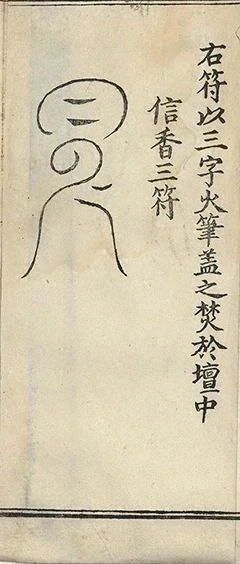 右符以三字火筆盖之焚於壇中
信香三符